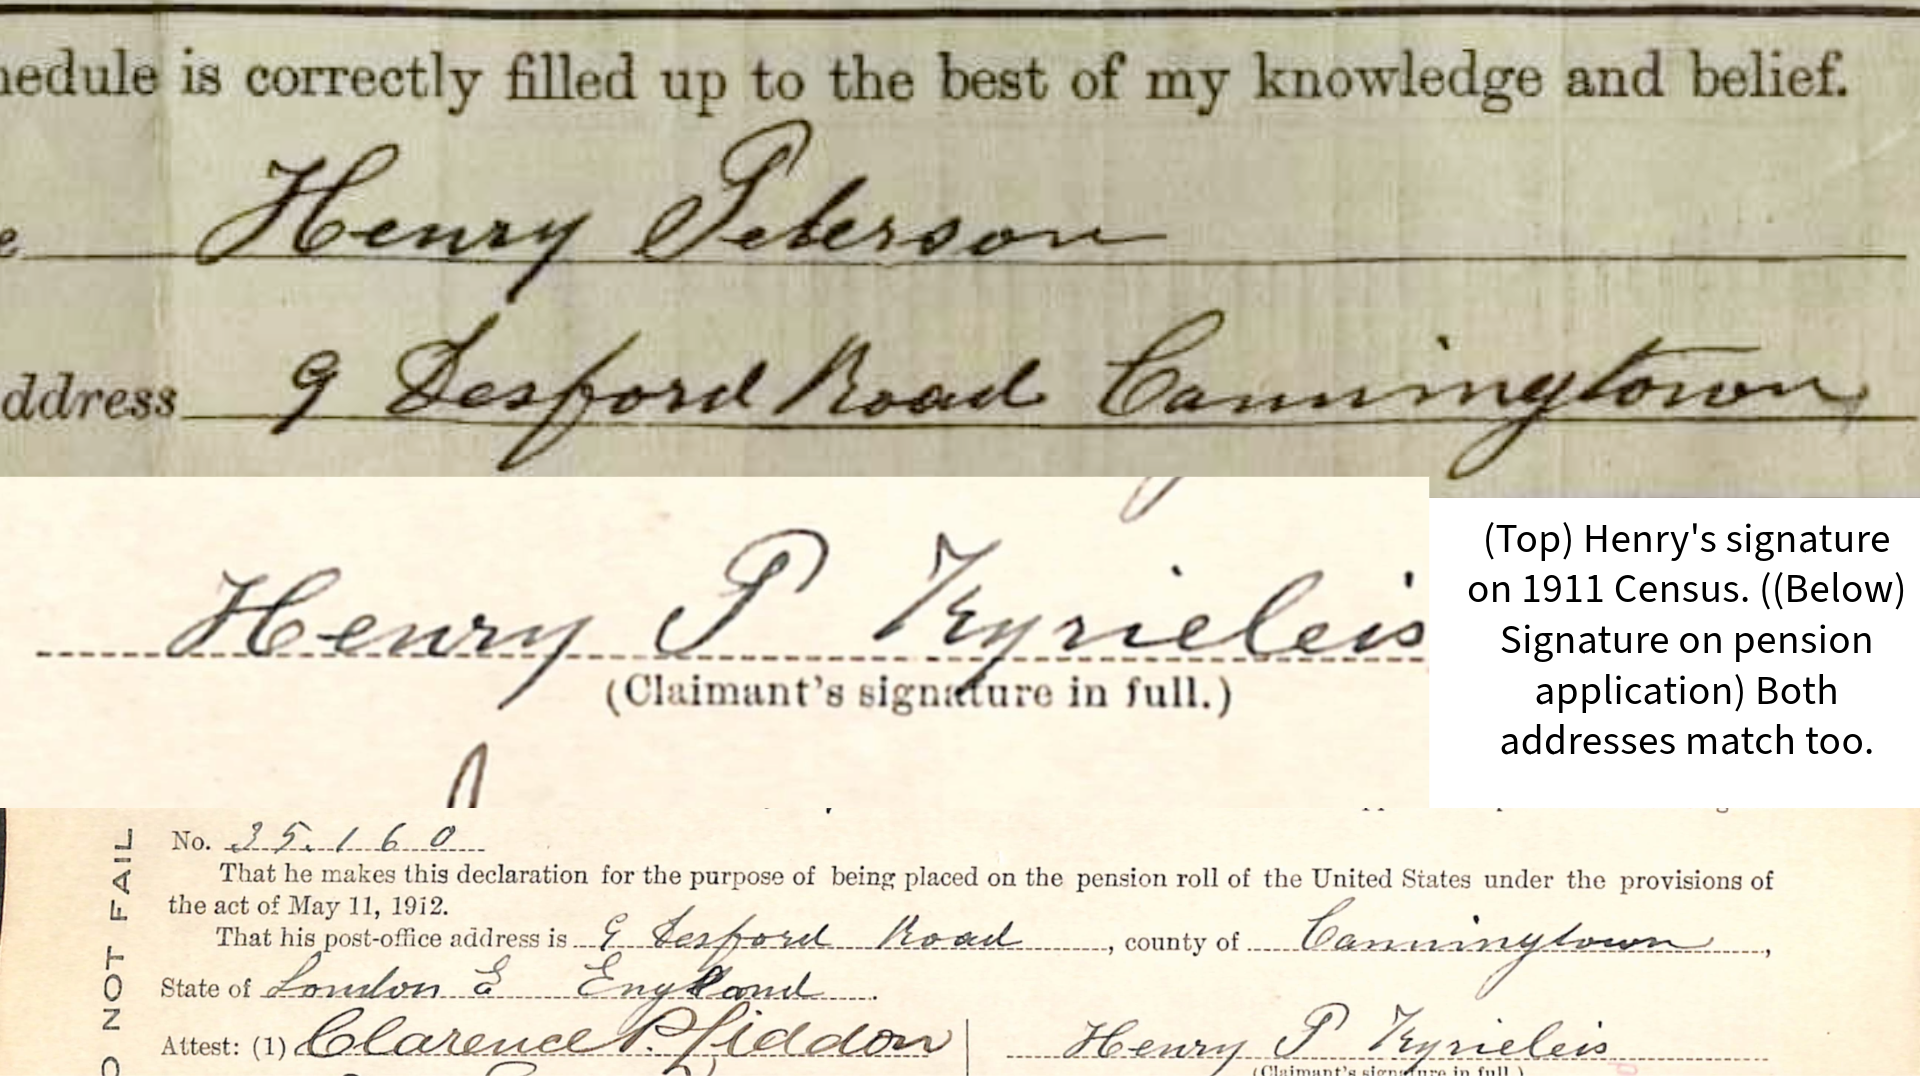 hedule is correctly filled up to the best of my knowledge and belief.
e Henry Peterson
ddress 9 Desford Road Canningtown
Henry P Kyrieleis
(Claimant's signature in full.)
(Top) Henry's signature
on 1911 Census. ((Below)
Signature on pension
application) Both
addresses match too.
O NOT FAIL
No. 35.160
That he makes this declaration for the purpose of being placed on the pension roll of the United States under the provisions of
the act of May 11, 1912.
That his post-office address is 9 Desford Road, county of Canningtown,
State of London E England.
Attest: (1) Clarence P. Siddon
Henry P Kyrieleis
(Claimant's signature in full.)